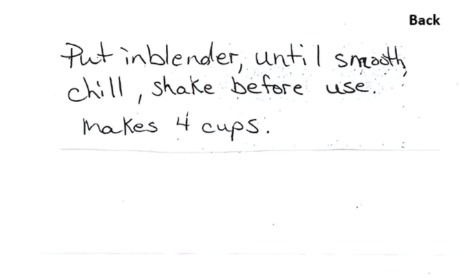 Back
Put in blender, until smooth,
chill, shake before use.
Makes 4 cups.